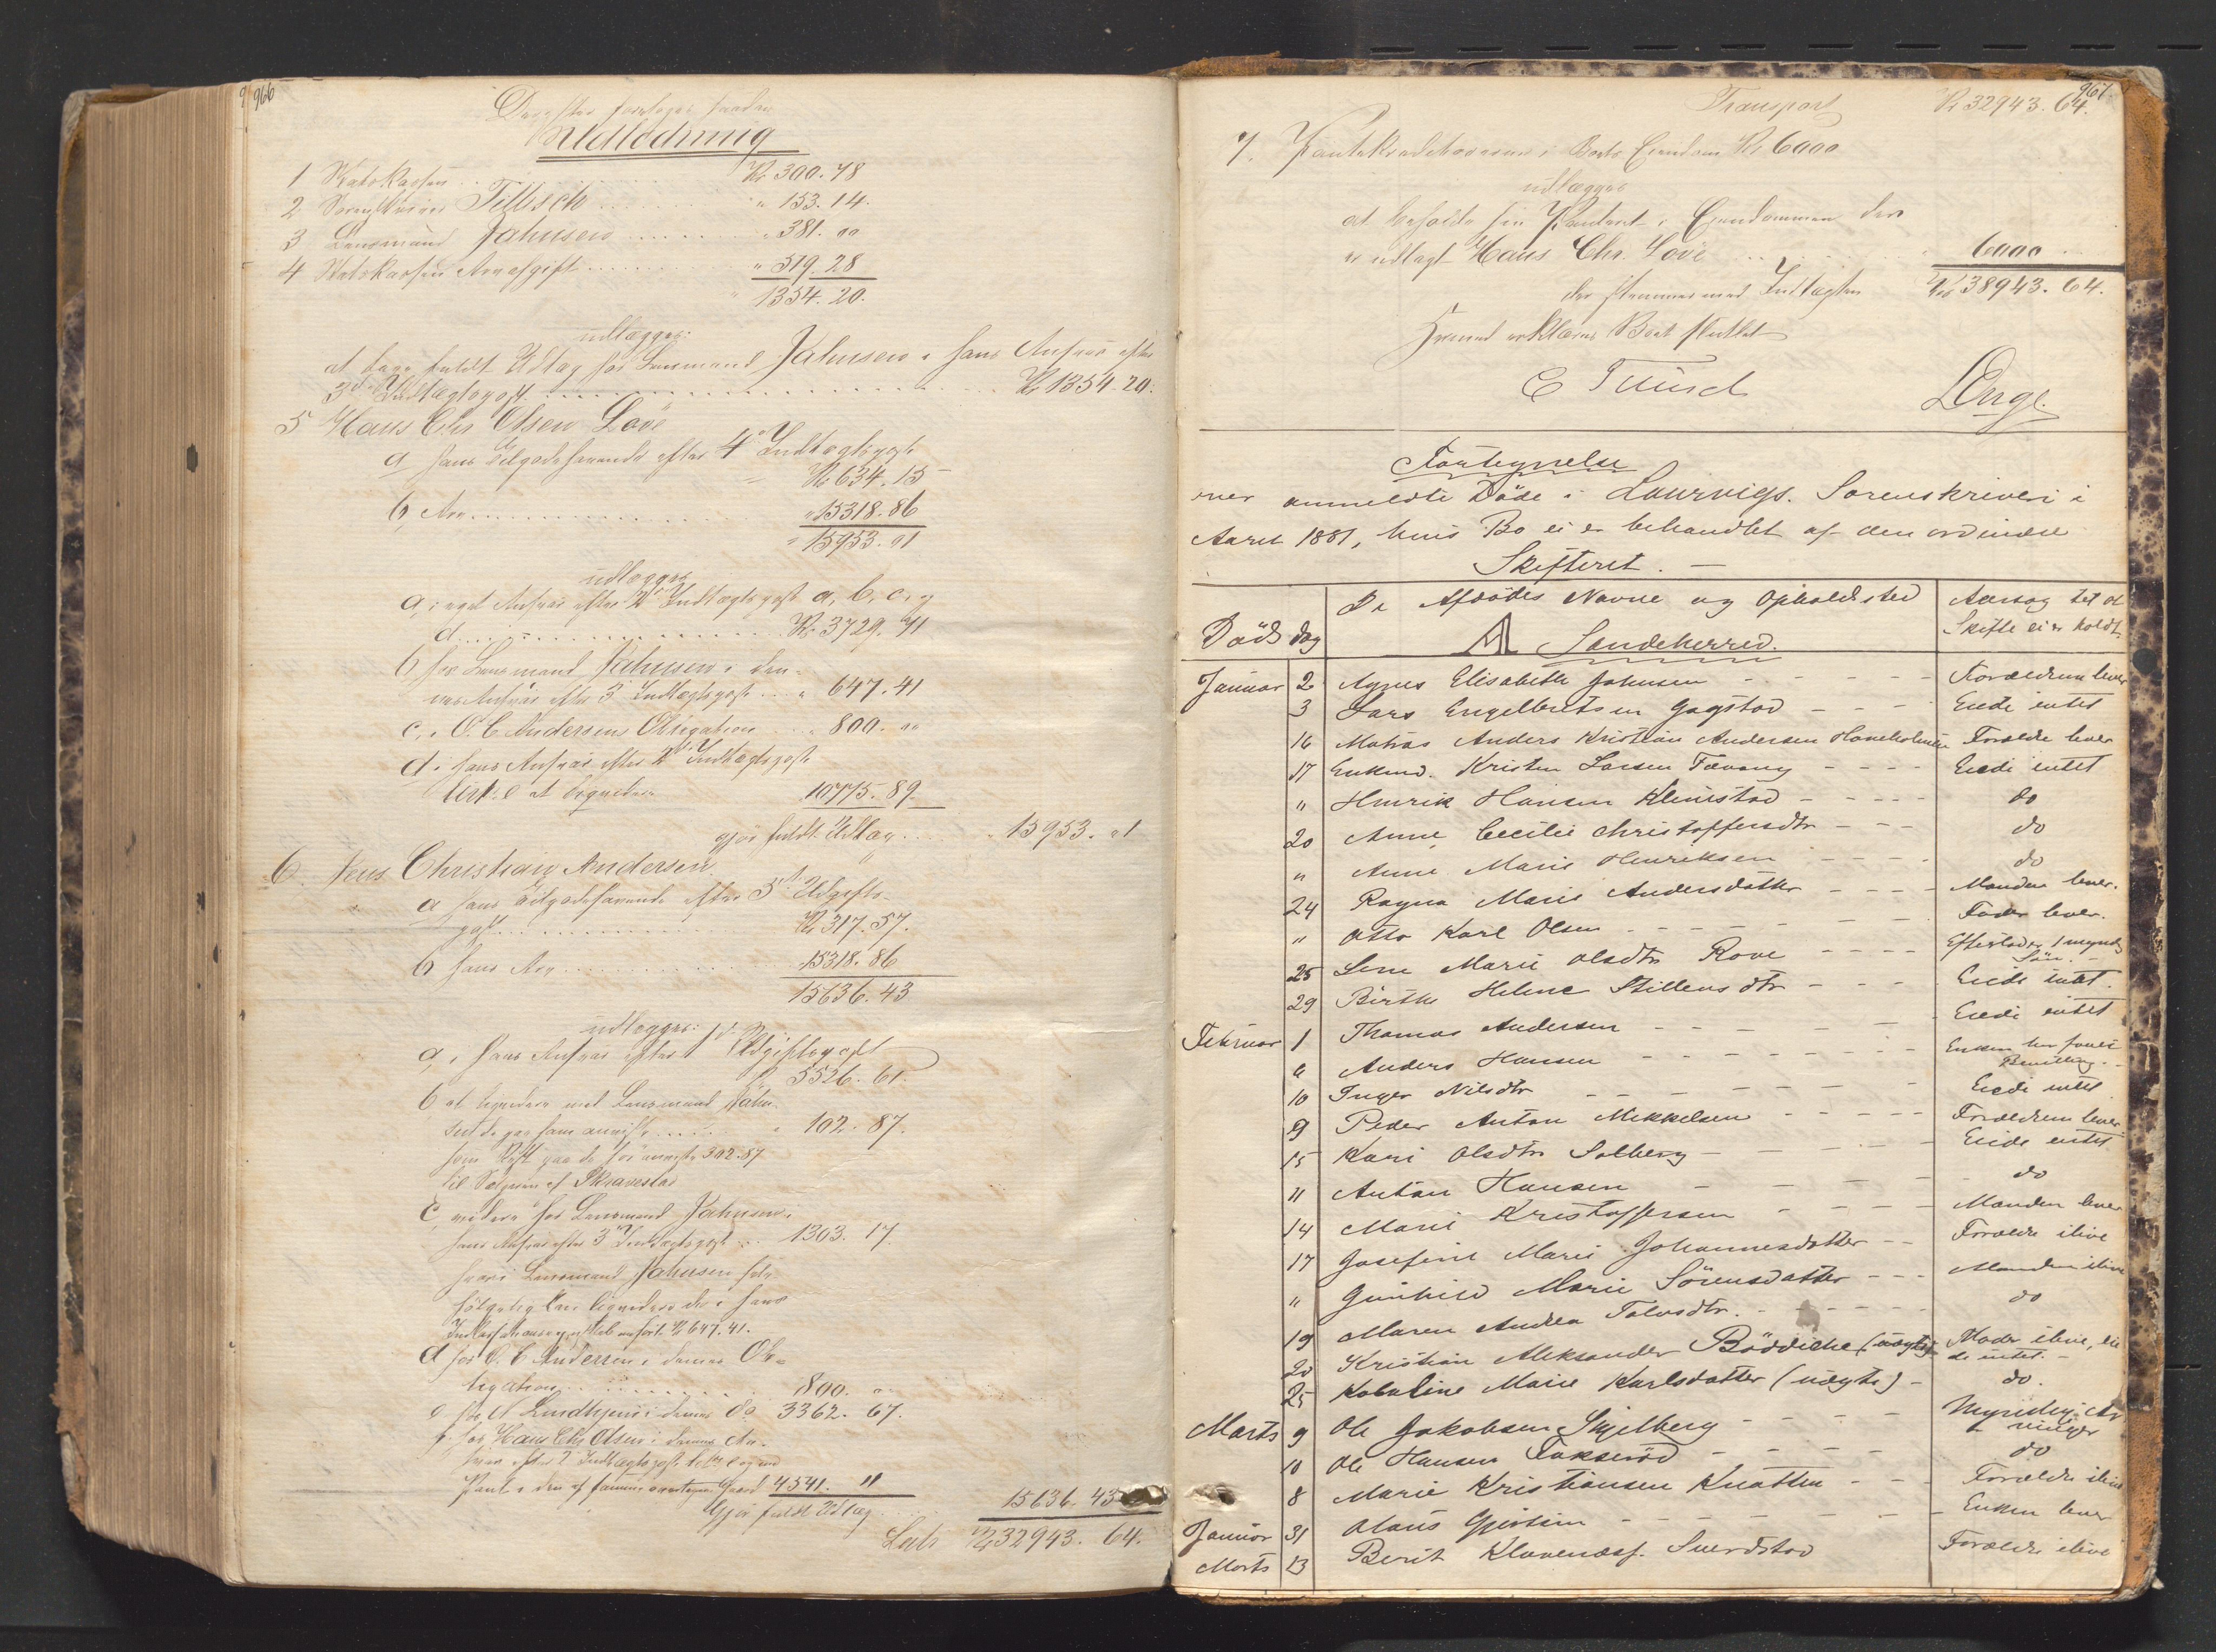 966
Derefter foretoges saadan
Udlodning
1 Statskassen Kr 300.78
2 Sorenskriver Tillisch " 153.14.
3 Lensmand Jahnsen " 381.00
4 Statskassen Arveafgift " 519.28
" 1354.20.
udlægges:
at have fuldt Udlæg hos Lensmand Jahnsen i hans Ansvar efter
3die Indtægtspost Kr 1354.20.
5 Hans Chr Olsen Löve
a hans Tilgodehavende efter 4de Indtægtspost
Kr 634.15
b, Arv " 15318.86
" 15953.01
udlægges
a, i eget Ansvar efter 2 Indtægtspost a, b, c, og
d Kr 3729.71
b hos Lensmand Jahnsen i den-
nes Ansvar efter 3 Indtægtspost " 647.41
c, i O. C. Andersens Obligation 800.00
d i hans Ansvar efter 2 Indtægtspost
Litr. e at liqvidere 10775.89
gjør fuldt Udlæg " 15953.01
6. Jens Christian Andersen
a hans Tilgodehavende efter 5te Udgifts-
post Kr 317.57.
b hans Arv 15318.86
15636.43
udlægges:
a, i hans Ansvar efter 1ste Udgiftspost
5526.61.
b at liqvidere med Lensmand Jahn-
" 102.87.
302.87
til Sælgeren af Skravestad
c, videre hos Lensmand Jahnsen i
hans Ansvar efter 3 Indtægtspost 1303.17.
hvori Lensmand Jahnsen
følgelig kan liqvidere det i hans
Kr 647.41.
d hos O. C Andersen i dennes Ob-
ligation 800.00
e hos A Lindhjem i dennes do 3362.67.
f. hos Hans Chr Olsen i dennes An-
svar efter 2 Indtægtspost
Pant i den af samme overtagne Gaard 4541. "
Gjør fuldt Udlæg 15636.43
Lats Kr 32943.64.
967.
Transport Kr 32943.64.
7. Pantekreditorerne i Boets Eiendom Kr 6000
udlægges
at beholde sin Panteret i Eiendommen der
er udlagt Hans Chr. Löve 6000
der stemmer med Indtægten Kr 38943.64.
Hermed erklæres Boet sluttet
E Tillisch
Lange
Fortegnelse
over anmeldte Döde i Laurvigs Sorenskriveri i
Aaret 1881, hvis Bo ei er behandlet af den ordinære
Skifteret. —
Döds dag
De Afdödes Navne og Opholdssted
Aarsag til at
Skifte ei er holdt
A Sandeherred.
Januar 2 Agnes Elisabeth Johnsen - - - Forældrene lever
3 Lars Engelbretsen Gogstad - - - Eiede intet
16 Mathias Anders Kristian Andersen Haneholmen Forældre lever
17 Enkemd. Kristen Larsen Tævang - - - Eiede intet
" Henrik Hansen Klinestad - - - do
20 Anne Cecilie Christoffersdtr - - - do
" Anne Marie Henriksen - - - do
24 Ragna Marie Andersdatter - - - Manden lever.
" Otto Karl Olsen - - - Fader lever.
25 Lene Marie Olsdtr Rove - - - Efterlader 1 myndig
Sön. -
29 Birthe Helene Stillensdtr - - - Eiede intet.
Februar 1 Thomas Andersen - - - Eiede intet
" Anders Hansen - - - Enken har faaet
Bevilling. -
10 Inger Nilsdtr - - - Eiede intet
9 Peder Anton Mikkelsen - - - Forældrene lever
15 Kari Olsdtr Solberg - - - Eiede intet
11 Anton Hansen - - - do
14 Marie Kristoffersen - - - Manden lever
17 Josefine Marie Johannesdatter - - Forældre ilive
" Gunhild Marie Sörensdatter - - - Manden ilive
19 Maren Andrea Tolvsdtr. - - - do
20 Kristian Aleksander Böddicke (uægte) Moder ilive, eie
de intet. -
25 Kataline Marie Karlsdatter (uægte) - do.
Marts 9 Ole Jakobsen Skjelberg - - - Myndige Ar
vinger
10 Ole Hansen Fokserød - - - do
8 Marie Kristiansen Knatten - - Forældre ilive
Januar 31 Olaus Gjertsen - - - Enken lever
Marts 13 Berit Klavenæsf. Sverdstad Forældre ilive